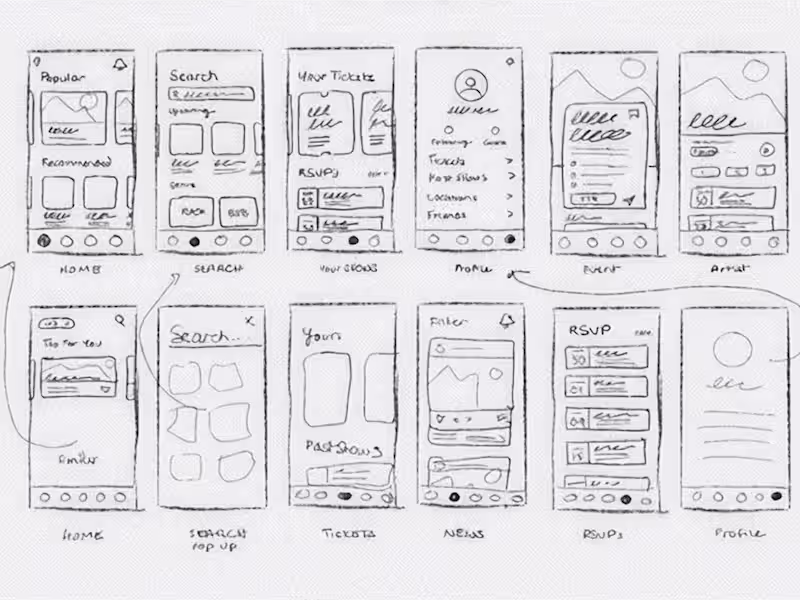 Popular
Recommended
HOME
Search
Upcoming
Genre
ROCK
R&B
SEARCH
Your Tickets
RSVPs
YOUR SHOWS
Following
Tickets
Past Shows
Locations
Friends
Profile
Event
Artist
Top For You
HOME
Search...
SEARCH
POP UP
Yours
Past Shows
TICKETS
Filter
NEWS
RSVP
30
RSVPs
Profile